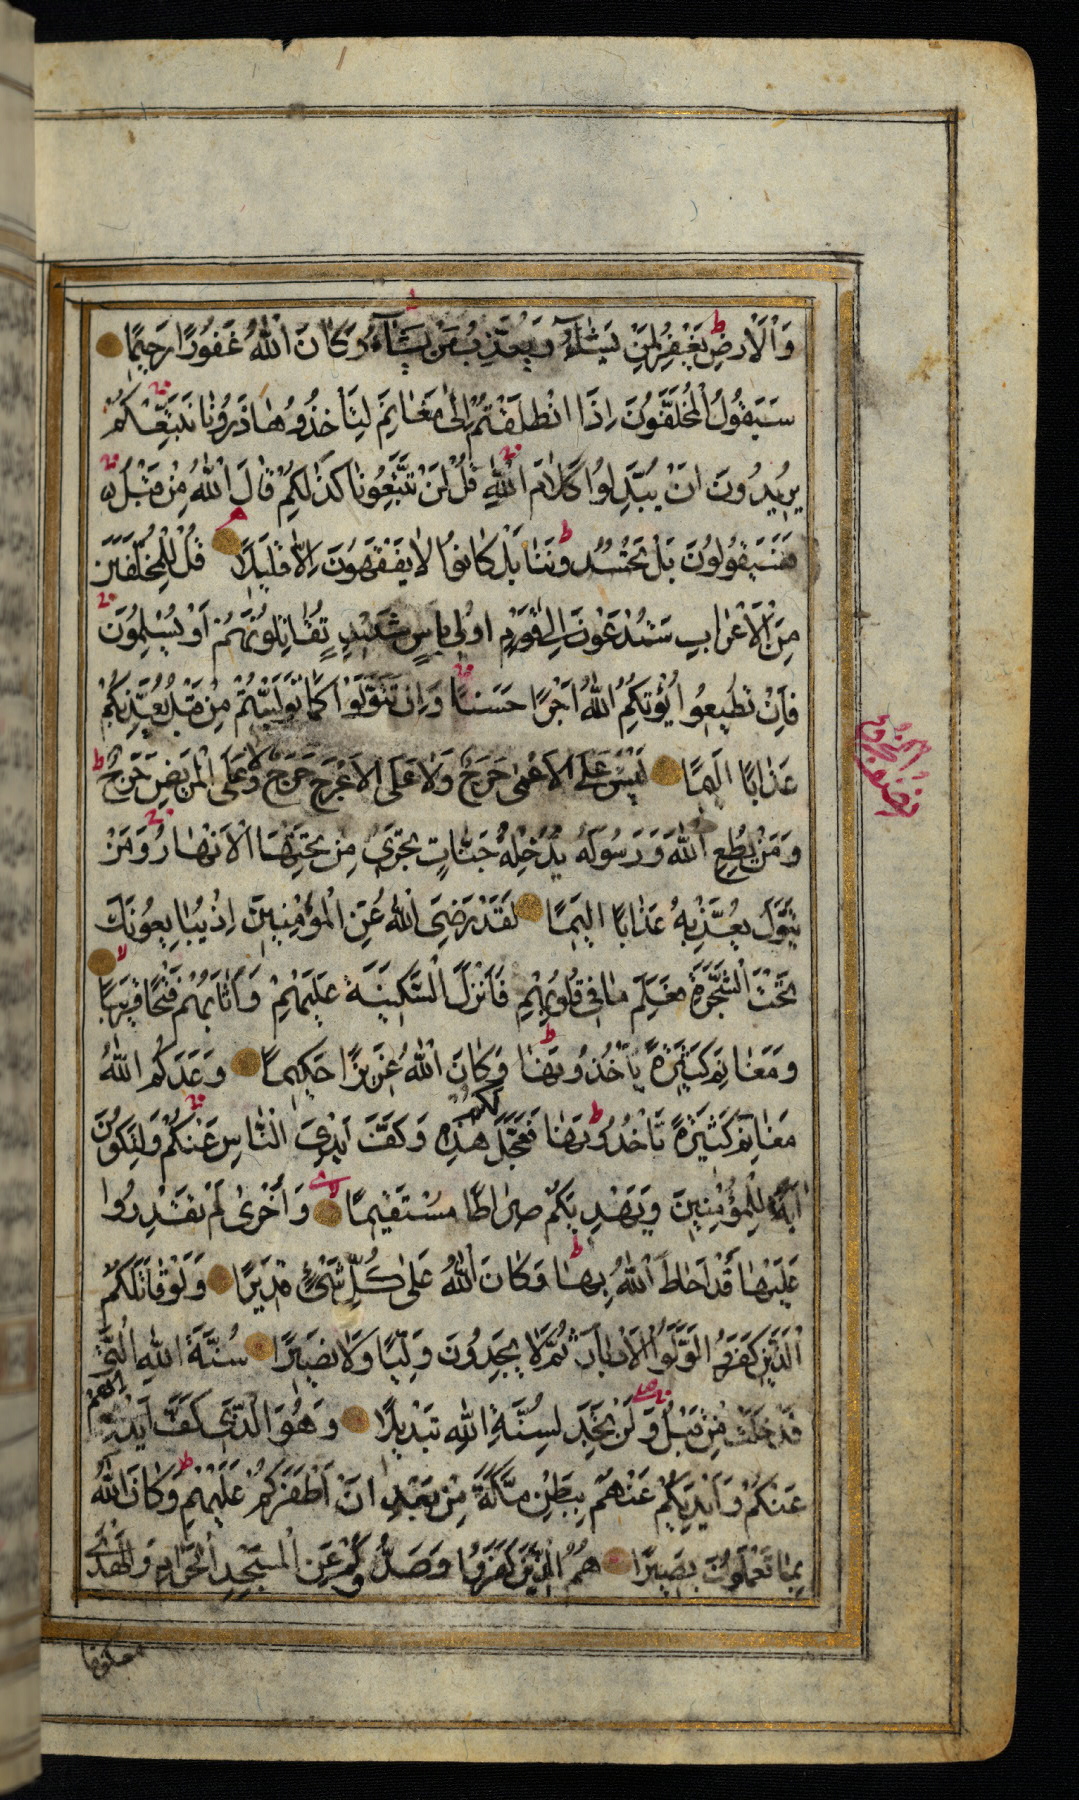 وَالْاَرْضِ يَغْفِرُ لِمَنْ يَشَاءُ وَيُعَذِّبُ مَنْ يَشَاءُ وَكَانَ اللّٰهُ غَفُورًا رَحِيمًا
سَيَقُولُ الْمُخَلَّفُونَ اِذَا انْطَلَقْتُمْ اِلٰى مَغَانِمَ لِتَأْخُذُوهَا ذَرُونَا نَتَّبِعْكُمْ
يُرِيدُونَ اَنْ يُبَدِّلُوا كَلَامَ اللّٰهِ قُلْ لَنْ تَتَّبِعُونَا كَذٰلِكُمْ قَالَ اللّٰهُ مِنْ قَبْلُ
فَسَيَقُولُونَ بَلْ تَحْسُدُونَنَا بَلْ كَانُوا لَا يَفْقَهُونَ اِلَّا قَلِيلًا قُلْ لِلْمُخَلَّفِينَ
مِنَ الْاَعْرَابِ سَتُدْعَوْنَ اِلٰى قَوْمٍ اُولِى بَأْسٍ شَدِيدٍ تُقَاتِلُونَهُمْ اَوْ يُسْلِمُونَ
فَاِنْ تُطِيعُوا يُؤْتِكُمُ اللّٰهُ اَجْرًا حَسَنًا وَاِنْ تَتَوَلَّوْا كَمَا تَوَلَّيْتُمْ مِنْ قَبْلُ يُعَذِّبْكُمْ
عَذَابًا اَلِيمًا لَيْسَ عَلَى الْاَعْمٰى حَرَجٌ وَلَا عَلَى الْاَعْرَجِ حَرَجٌ وَلَا عَلَى الْمَرِيضِ حَرَجٌ
وَمَنْ يُطِعِ اللّٰهَ وَرَسُولَهُ يُدْخِلْهُ جَنَّاتٍ تَجْرِى مِنْ تَحْتِهَا الْاَنْهَارُ وَمَنْ
يَتَوَلَّ يُعَذِّبْهُ عَذَابًا اَلِيمًا لَقَدْ رَضِىَ اللّٰهُ عَنِ الْمُؤْمِنِينَ اِذْ يُبَايِعُونَكَ
تَحْتَ الشَّجَرَةِ فَعَلِمَ مَا فِى قُلُوبِهِمْ فَاَنْزَلَ السَّكِينَةَ عَلَيْهِمْ وَاَثَابَهُمْ فَتْحًا قَرِيبًا
وَمَغَانِمَ كَثِيرَةً يَأْخُذُونَهَا وَكَانَ اللّٰهُ عَزِيزًا حَكِيمًا وَعَدَكُمُ اللّٰهُ
مَغَانِمَ كَثِيرَةً تَأْخُذُونَهَا فَعَجَّلَ لَكُمْ هٰذِهِ وَكَفَّ اَيْدِىَ النَّاسِ عَنْكُمْ وَلِتَكُونَ
اٰيَةً لِلْمُؤْمِنِينَ وَيَهْدِيَكُمْ صِرَاطًا مُسْتَقِيمًا وَاُخْرٰى لَمْ تَقْدِرُوا
عَلَيْهَا قَدْ اَحَاطَ اللّٰهُ بِهَا وَكَانَ اللّٰهُ عَلٰى كُلِّ شَىْءٍ قَدِيرًا وَلَوْ قَاتَلَكُمُ
الَّذِينَ كَفَرُوا لَوَلَّوُا الْاَدْبَارَ ثُمَّ لَا يَجِدُونَ وَلِيًّا وَلَا نَصِيرًا سُنَّةَ اللّٰهِ الَّتِى
قَدْ خَلَتْ مِنْ قَبْلُ وَلَنْ تَجِدَ لِسُنَّةِ اللّٰهِ تَبْدِيلًا وَهُوَ الَّذِى كَفَّ اَيْدِيَهُمْ
عَنْكُمْ وَاَيْدِيَكُمْ عَنْهُمْ بِبَطْنِ مَكَّةَ مِنْ بَعْدِ اَنْ اَظْفَرَكُمْ عَلَيْهِمْ وَكَانَ اللّٰهُ
بِمَا تَعْمَلُونَ بَصِيرًا هُمُ الَّذِينَ كَفَرُوا وَصَدُّوكُمْ عَنِ الْمَسْجِدِ الْحَرَامِ وَالْهَدْىَ
معكوفا